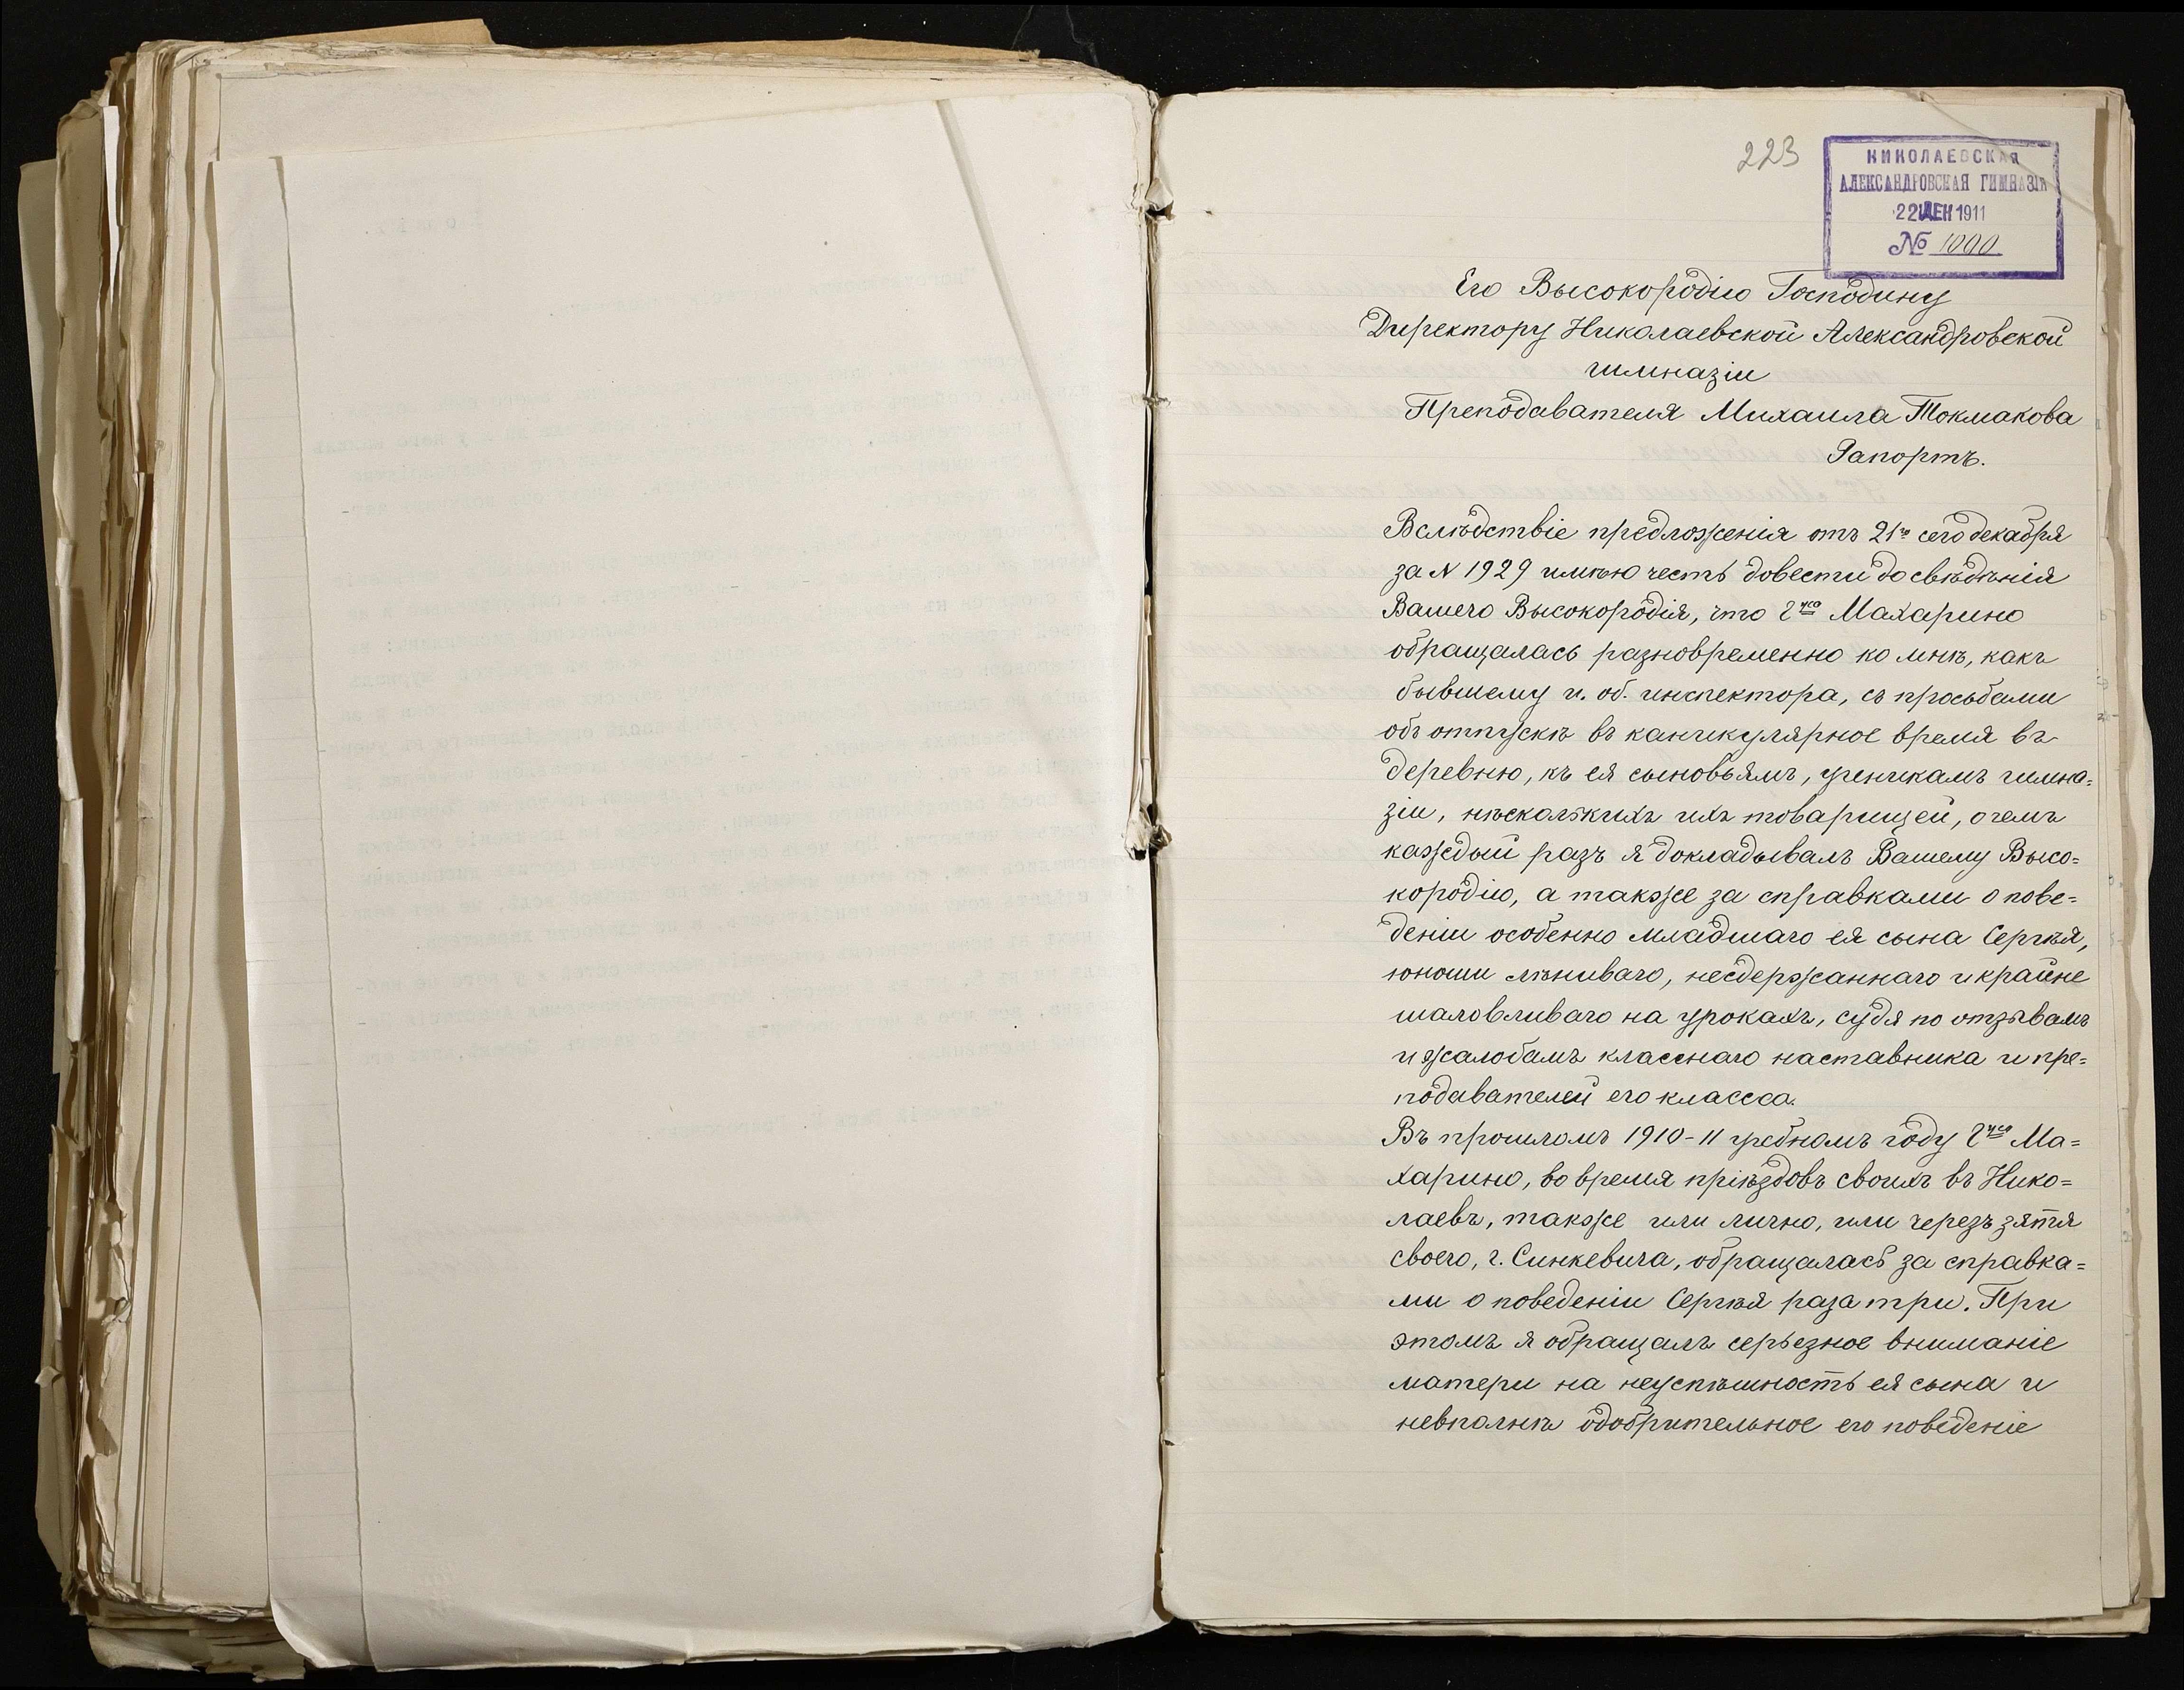 223
НИКОЛАЕВСКАЯ
АЛЕКСАНДРОВСКАЯ ГИМНАЗІЯ
22 ДЕК 1911
№ 1000
Его Высокородію Господину
Директору Николаевской Александровской
гимназіи
Преподавателя Михаила Токмакова
Рапортъ.
Вслѣдствіе предложенія отъ 21го сего декабря
за N 1929 имѣю честь довести до свѣдѣнія
Вашего Высокородія, что гжа Махарино
обращалась разновременно ко мнѣ, какъ
бывшему и. об. инспектора, съ просьбами
объ отпускѣ въ каникулярное время въ
деревню, къ ея сыновьямъ, ученикамъ гимна=
зіи, нѣсколькихъ ихъ товарищей, о чемъ
каждый разъ я докладывалъ Вашему Высо=
кородію, а также за справками о пове=
деніи особенно младшаго ея сына Сергѣя,
юноши лѣниваго, несдержаннаго и крайне
шаловливаго на урокахъ, судя по отзывамъ
и жалобамъ класснаго наставника и пре=
подавателей его класса.
Въ прошломъ 1910-11 учебномъ году гжа Ма=
харино, во время пріѣздовъ своихъ въ Нико=
лаевъ, также или лично, или черезъ зятя
своего, г. Синкевича, обращалась за справка=
ми о поведеніи Сергѣя раза три. При
этомъ я обращалъ серьезное вниманіе
матери на неуспѣшность ея сына и
невполнѣ одобрительное его поведеніе